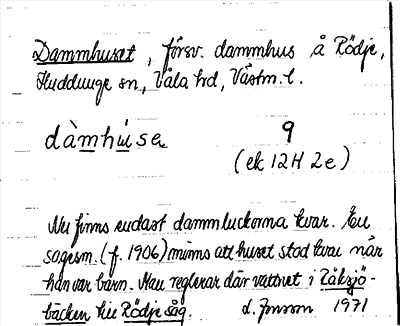 Dammhuset, försv. dammhus å Rödje,
Huddunge sn, Våla hd, Västm. l.
dàmhúse 9
(ek 12H 2e)
Nu finns endast dammluckorna kvar. En
sagesm. (f. 1906) minns att huset stod kvar när
han var barn. Man reglerar där vattnet i Råksjö-
bäcken till Rödje såg. d. Jonsson 1971